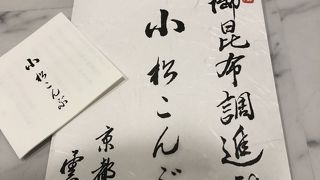 御昆布調進
小松こんぶ
京都
雲
小松こんぶ